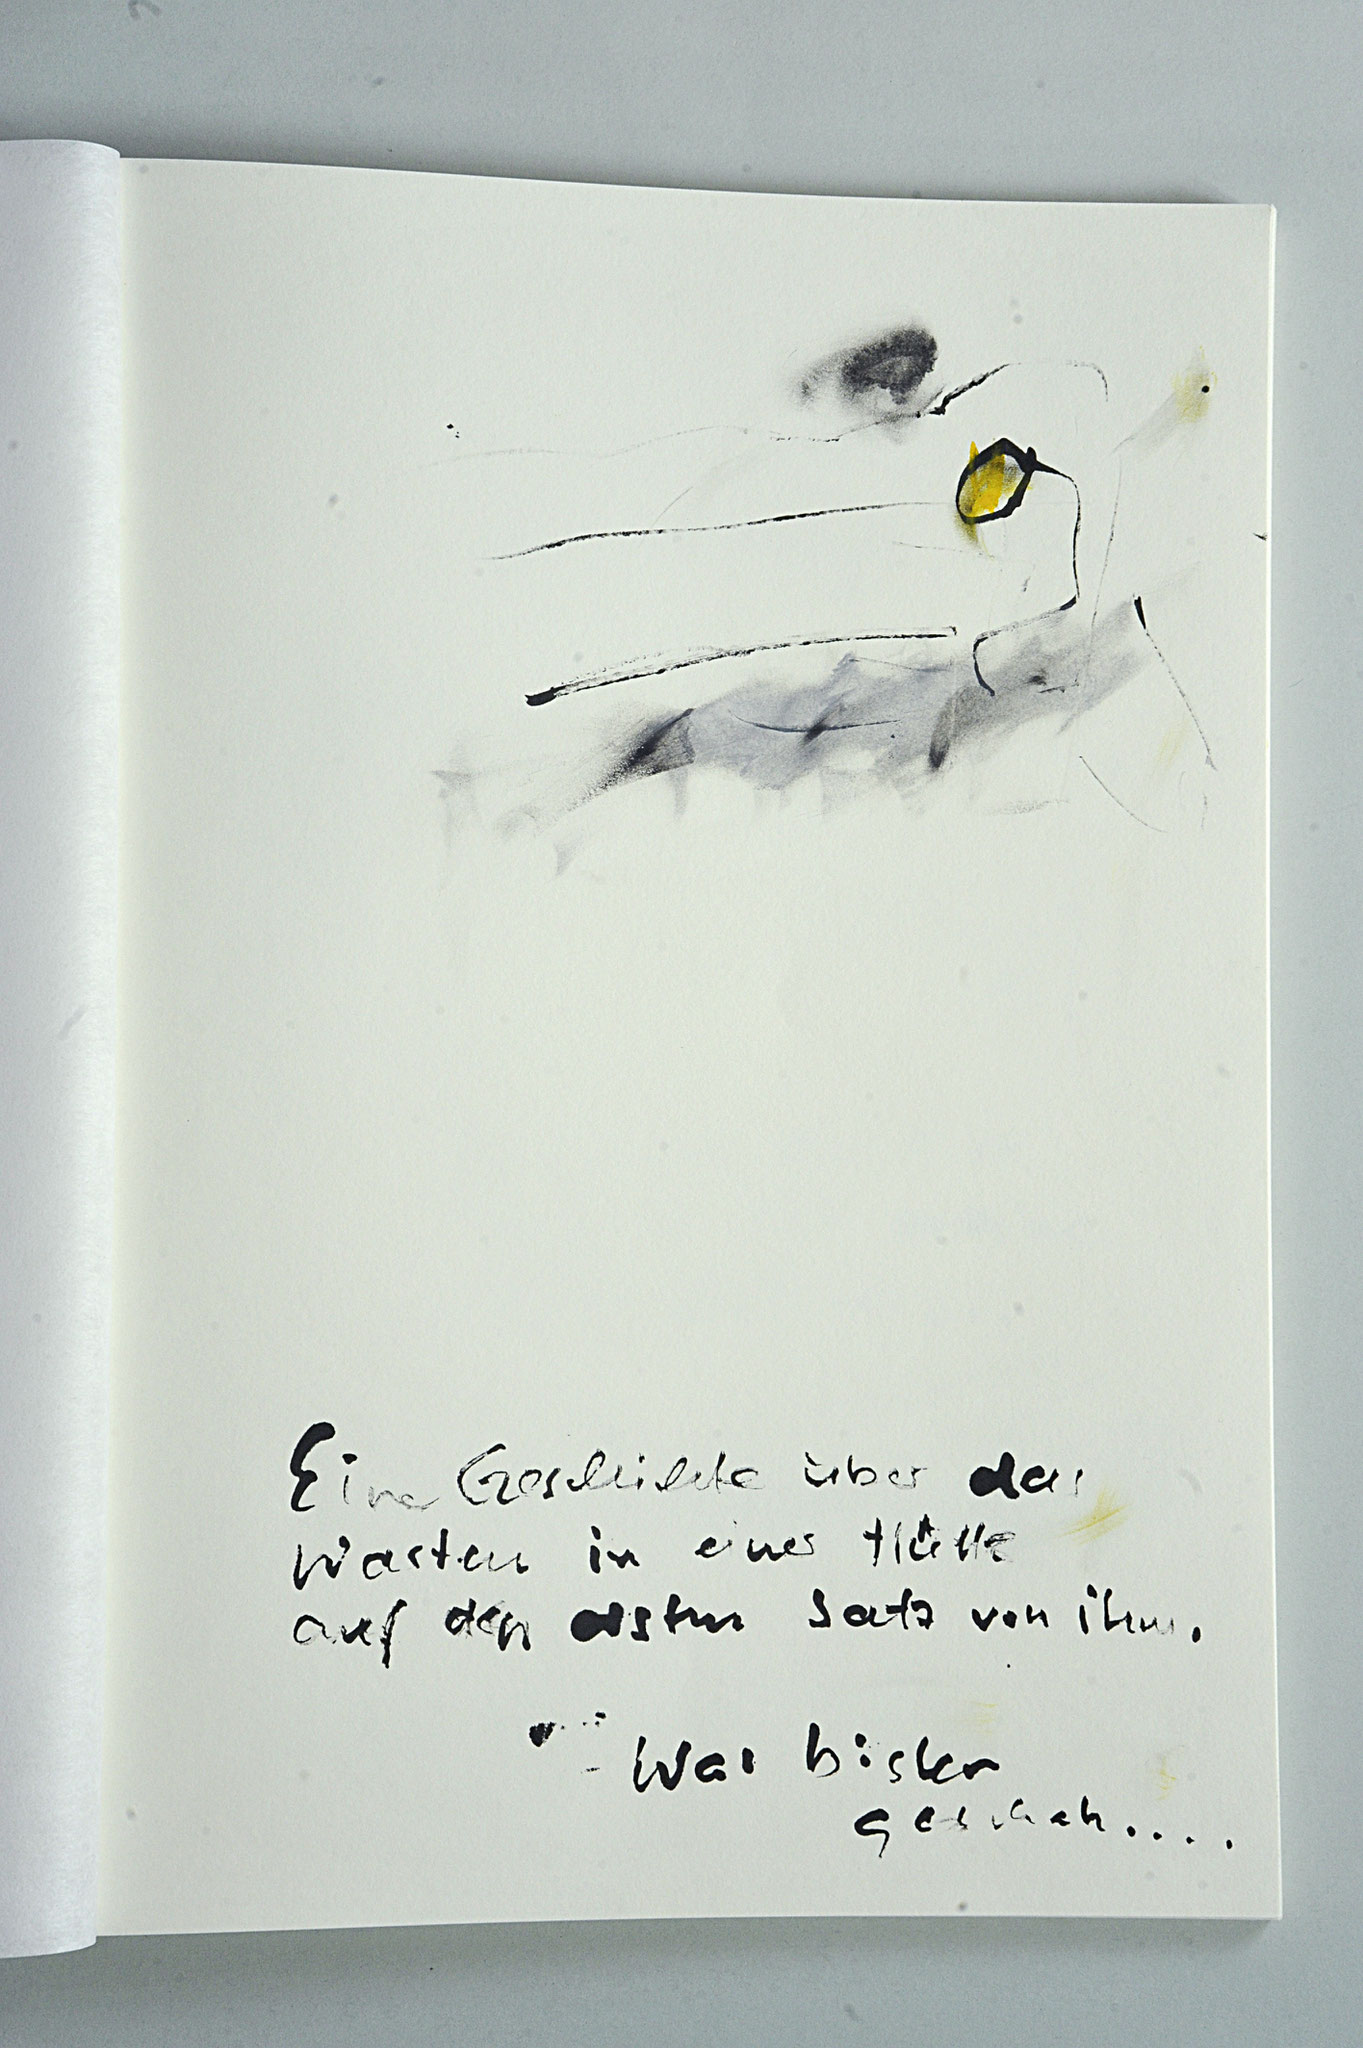 Eine Geschichte über das
Warten in einer Hütte
auf den ersten Satz von ihm.
War bisher
geschah....